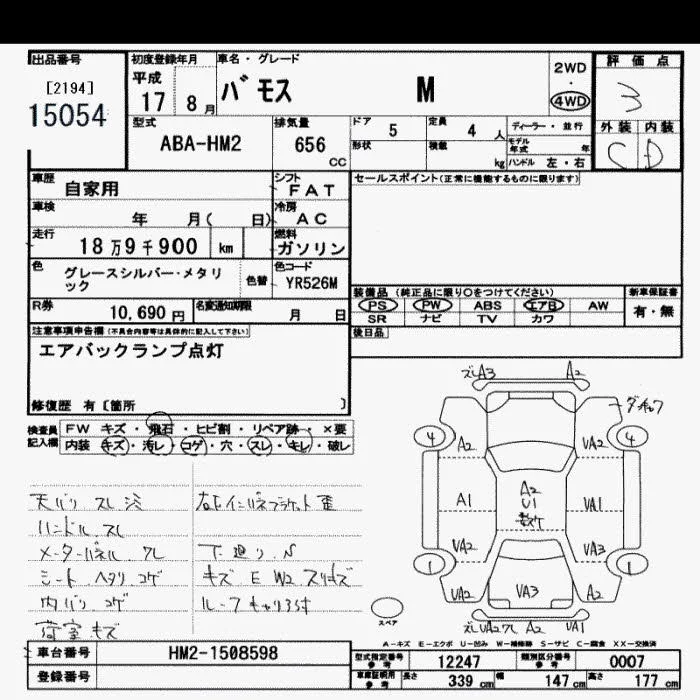 出品番号
[2194]
15054
初度登録年月
平成
17 8 月
車名・グレード
バモス M
2WD
・
4WD
評価点
3
外装 内装
C D
型式
ABA-HM2
排気量
656
CC
ドア
5
定員
4 人
ディーラー・並行
モデル年式 年
形状
積載
kg
ハンドル 左・右
車歴
自家用
シフト
FAT
セールスポイント(正常に機能するものに限ります)
車検
年 月( 日)
冷房
AC
走行
18万9千900 km
燃料
ガソリン
色
グレースシルバー・メタリ
ック
色替
色コード
YR526M
装備品 (純正品に限り○をつけてください)
新車保証書
PS PW ABS エアB AW
有・無
SR ナビ TV カワ
R券
10,690 円
名変通知期限
月 日
後日品
注意事項申告欄(不具合内容等は具体的に記入して下さい)
エアバックランプ点灯
修復歴 有 〔箇所 〕
検査員
記入欄
FW キズ・飛石・ヒビ割・リペア跡・×要
内装 キズ・汚レ・コゲ・穴・スレ・キレ・破レ
ズレA3 A2
4 A2 VA2 4
A1 A2 U1 VA1
VA2 VA3
1 VA2 VA3 A2 1
A2 VA1
スペア
天バリ スレ
ハンドル スレ
メーターパネル ワレ
シート ヘタリ コゲ
内バリ コゲ
荷室 キズ
右F インパネブラケット 歪
下廻り
キズ E W2 スリキズ
ルーフキャリア
A-キズ E-エクボ U-凹み W-補修跡 S-サビ C-腐食 XX-交換済
車台番号
HM2-1508598
登録番号
型式指定番号
参考
12247
類別区分番号
参考
0007
車庫証明用
参考
長さ
339 cm
幅
147 cm
高さ
177 cm